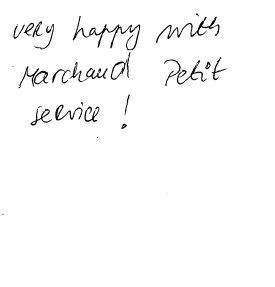 very happy with
Marchaud Petit
service !